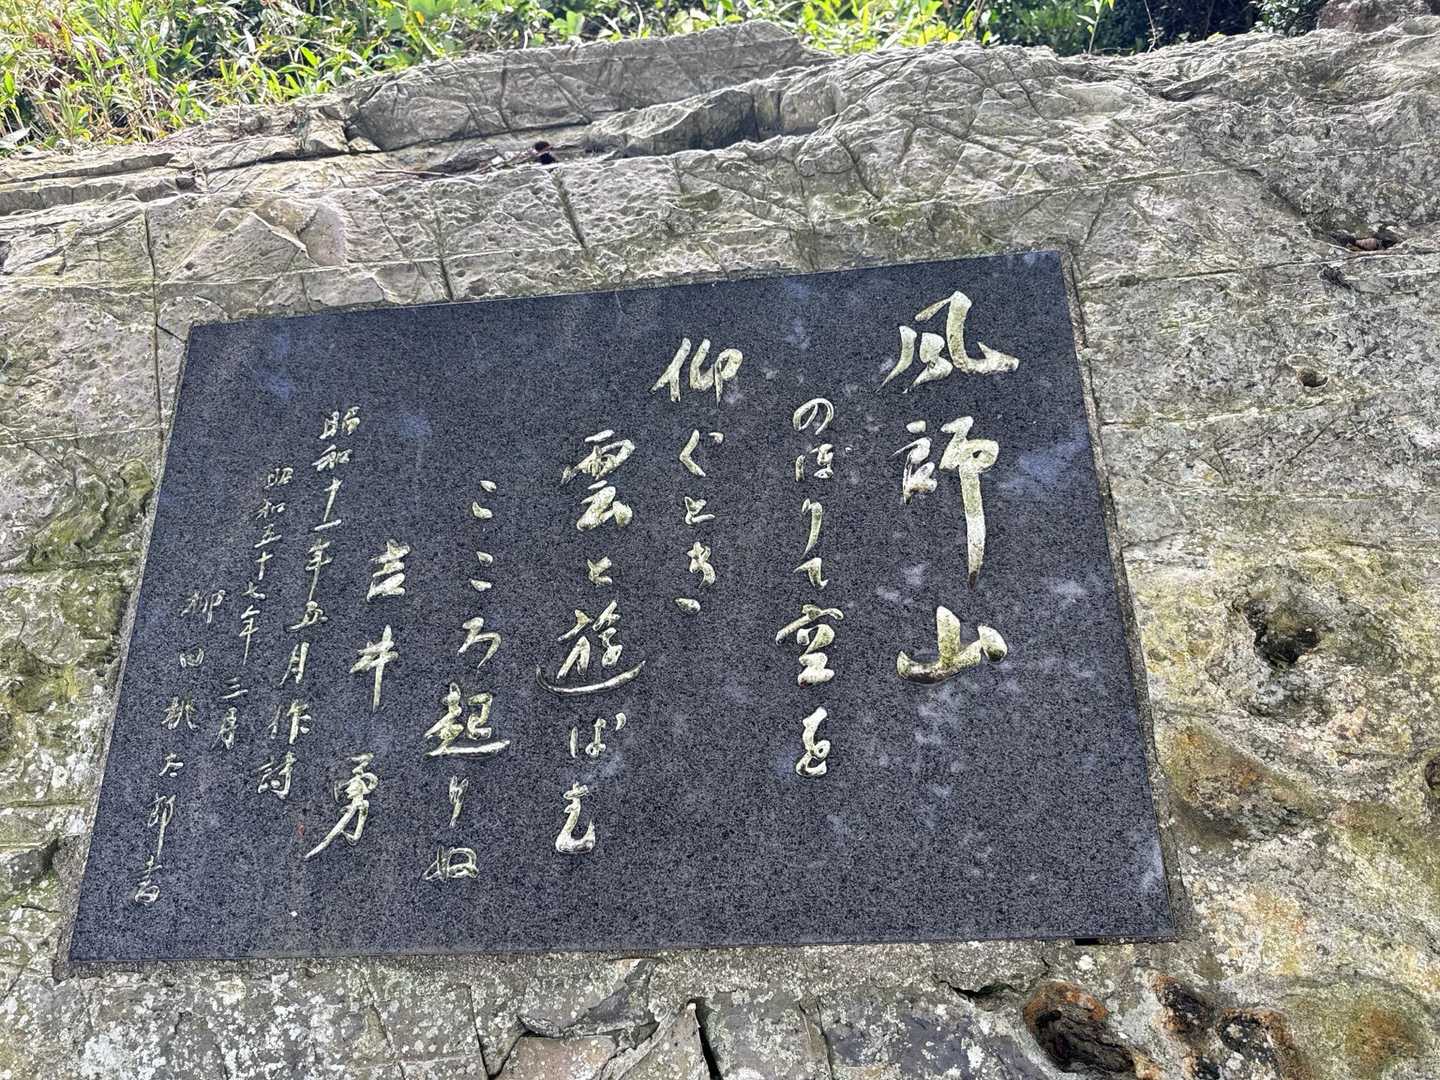 風師山
のぼりて空を
仰ぐとき、
雲と遊ばむ
こころ起りぬ
吉井勇
昭和十一年五月作詩
昭和五十七年三月
柳田桃太郎書